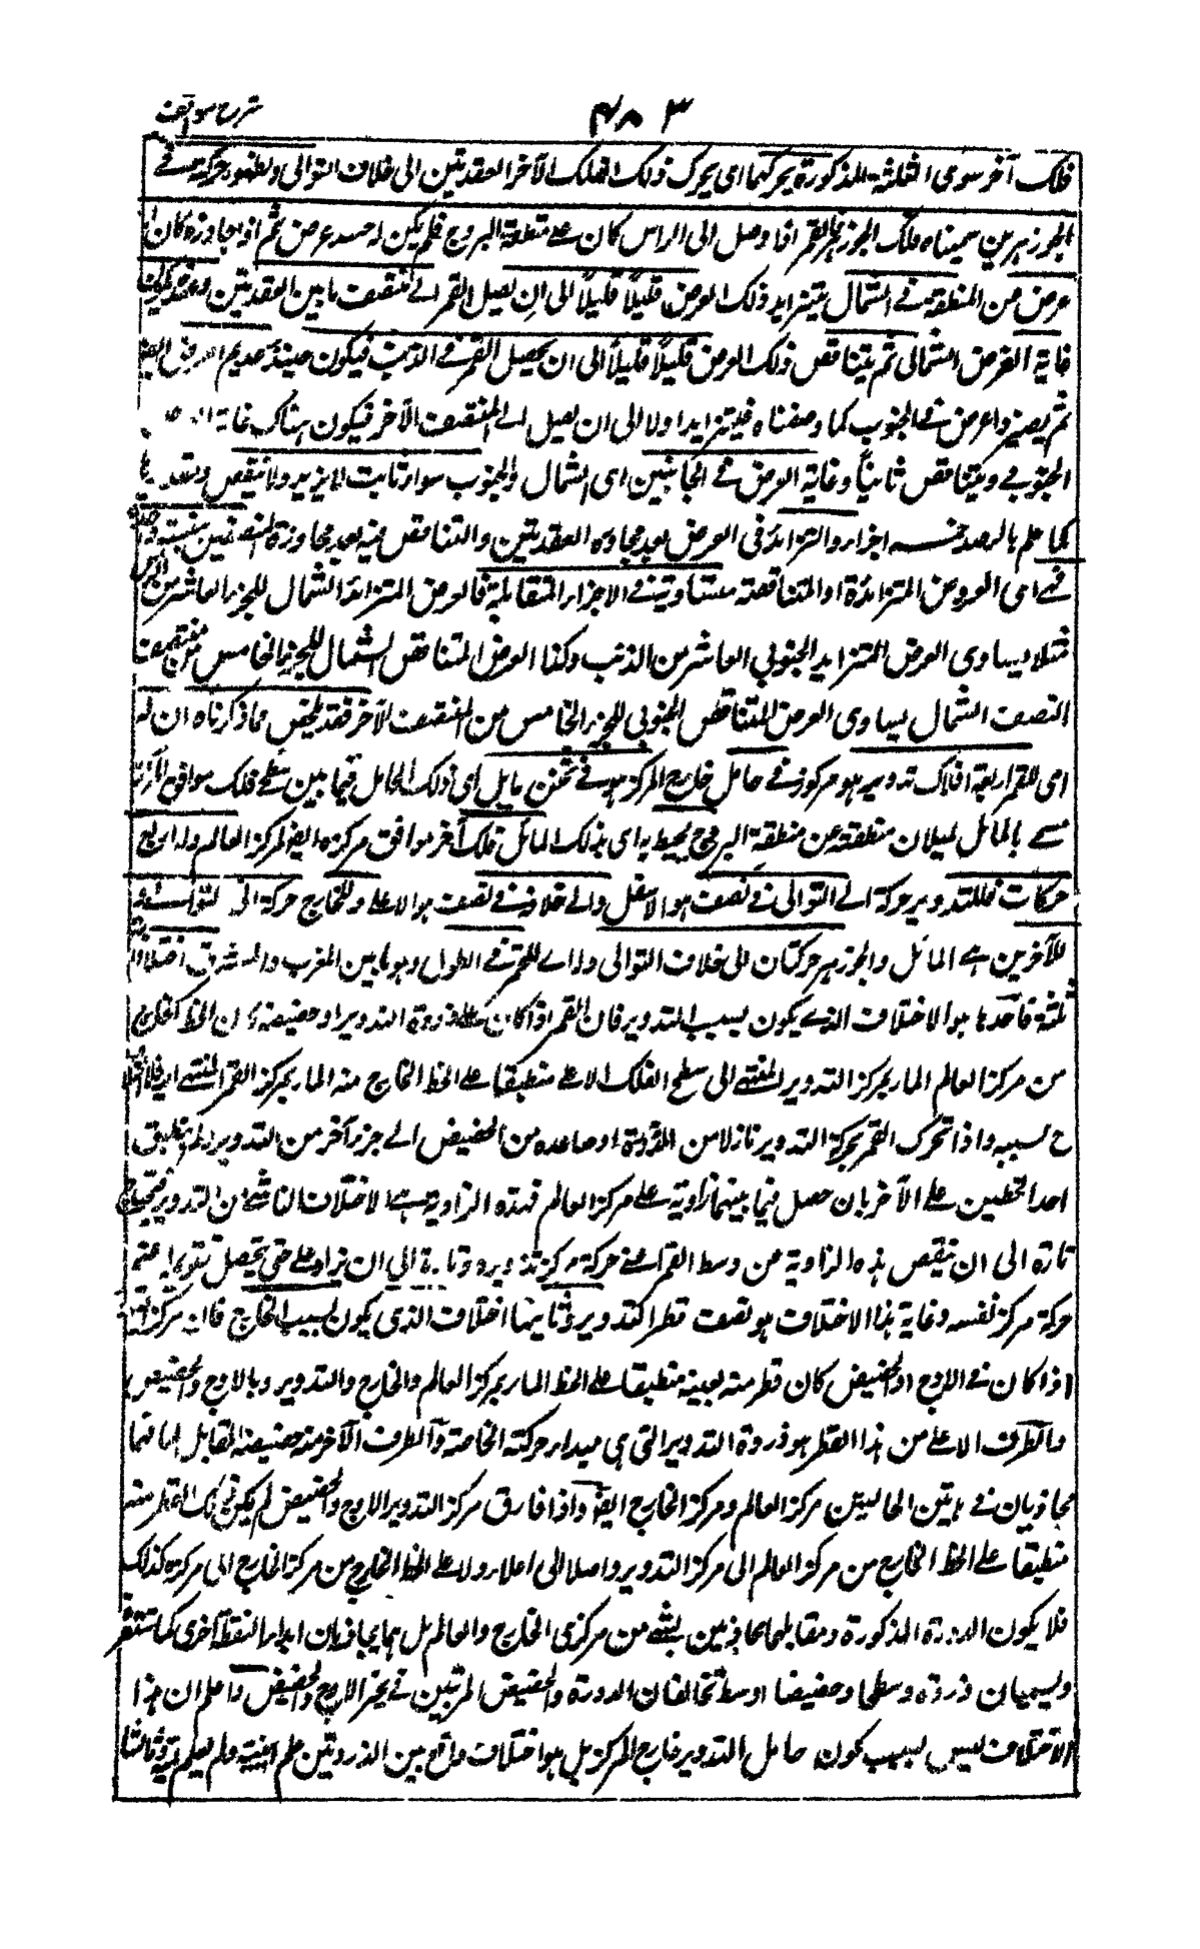 شرح مواقف
۴۸۳
فلك آخر سوى الثلثة المذكورة يحركها اى يحرك ذلك الفلك الآخر العقدتين الى خلاف التوالى ولظهور حركته فى
الجوزهرين سميناه فلك الجوزهر القمر اذا وصل الى الراس كان على منطقة البروج فلم يكن له حينئذ عرض ثم اذا جاوزه كان له
عرض من المنطقة فى الشمال يتزايد ذلك العرض قليلاً قليلاً الى ان يصل القمر الى المنتصف ما بين العقدتين وعنده
غاية العرض الشمالى ثم يتناقص ذلك العرض قليلاً قليلاً الى ان يحصل القمر فى الذنب فيكون حينئذ عديم العرض ايضا
ثم يصير ذا عرض فى الجنوب كما وصفناه فيتزايد اولا الى ان يصل الى المنتصف الآخر فيكون هناك غاية
الجنوبى ويتناقص ثانياً وغاية العرض فى الجانبين اى الشمال والجنوب سواء ثابت لا يزيد ولا ينقص وقدرها
كما علم بالرصد خمسة اجزاء والتزايد فى العرض بعد مجاوزة العقدتين والتناقص فيه بعد مجاوزة المنتصفين بنسبة واحدة
فهى اى العروض المتزائدة او المتناقصة متساوية فى الاجزاء المتقابلة فالعرض المتزائد الشمالى للجزء العاشر من الراس
مثلا يساوى العرض المتزايد الجنوبى العاشر من الذنب وكذا العرض المتناقص الشمالى للجزء الخامس من منتصف
النصف الشمالى يساوى العرض المتناقص الجنوبى للجزء الخامس من المنتصف الآخر فقد تلخص مما ذكرناه ان له
اى للقمر اربعة افلاك تدوير هو مركوز فى حامل خارج المركز هو فى ثخن مايل اى ذلك الحامل فيما بين سطحى فلك موافق المركز
سمى بالمائل لميلان منطقته عن منطقة البروج يحيط به اى بذلك المائل فلك آخر موافق مركزه ايضا لمركز العالم وله اربع
حركات فللتدوير حركة الى التوالى فى نصف هو الاسفل والى خلافه فى نصف هو الاعلى وللخارج حركة الى التوالى
للآخرين هے المائل والجوزهر حركتان الى خلاف التوالى وله اى للقمر فى الطول وهو ما بين المغرب والمشرق اختلافات
ثلثة فاحدها هو الاختلاف الذى يكون بسبب التدوير فان القمر اذا كان على ذروة التدوير او حضيضه كان الخط الخارج
من مركز العالم المار بمركز التدوير المنتهى الى سطح الفلك الاعلى منطبقا على الخط الخارج منه المار بمركز القمر المنتهى اليه فلا اختلاف
ح بسببه واذا تحرك القمر بحركة التدوير نازلا من الذروة او صاعدا من الحضيض الى جزء آخر من التدوير لم ينطبق
احد الخطين على الآخر بان حصل فيما بينهما زاوية على مركز العالم فهذه الزاوية هى الاختلاف الناشى من التدوير فيحتاج
تارة الى ان ينقص هذه الزاوية من وسط القمر اعنى حركة مركز تدويره وتارة الى ان يزاد على حتى يحصل تقويمه اعنى
حركة مركز نفسه وغاية هذا الاختلاف هو نصف قطر التدوير وثانيها اختلاف الذى يكون بسبب الخارج فان مركز التدوير
اذا كان فى الاوج او الحضيض كان قطر منه بعينه منطبقا على الخط المار بمركز العالم والخارج والتدوير وبالاوج والحضيض
والطرف الاعلى من هذا القطر هو ذروة التدوير التى هى مبدأ حركته الخاصة والطرف الآخر منه حضيضه المقابل لها فهما
محاذيان فى هاتين الحالتين مركز العالم ومركز الخارج ايضا واذا فارق مركز التدوير الاوج والحضيض لم يكن ذلك القطر منه
منطبقا على الخط الخارج من مركز العالم الى مركز التدوير واصلا الى اعلاه ولا على الخط الخارج من مركز الخارج الى مركزه كذلك
فلا يكون الذروة المذكورة ومقابلها محاذيين بشئ من مركزى الخارج والعالم بل هما يحاذيان ابدا لنقطة اخرى كما ستعرف
ويسميان ذروة وسطى وحضيضا اوسط تخالفان الذروة والحضيض المرئيين فى غير الاوج والحضيض واعلم ان هذا
الاختلاف ليس بسبب كون حامل التدوير خارج المركز بل هو اختلاف واقع بين الذروتين علم انيته ولم يعلم لميته وثالثها